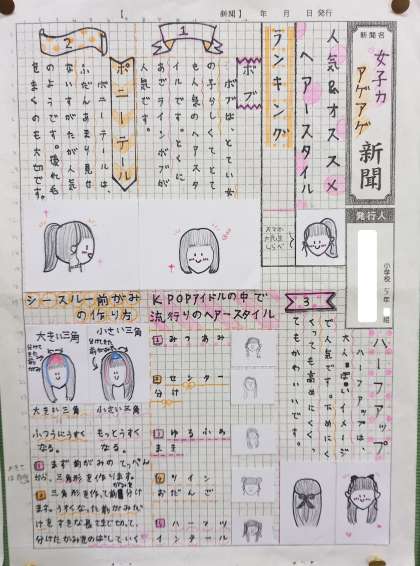 【 新聞】 年 月 日 発行
新聞名
女子力
アゲアゲ
新聞
発行人
小学校 5年 組
人気&オススメ
ヘアースタイル
ランキング
1
ボブ
ボブは、とてい女
の子らしくてとて
も人気のヘアスタ
イルです。とくに
あごラインボブが
人気です。
2
ポニーテール
ポニーテールは、
ふだんあまり見せ
ないすがたが人気
のようです。後れ毛
をまくのも大切です。
3
ハーフアップ
ハーフアップは、
大人っぽいイメージ
で人気です。下めにくく
くっても高めにくくっ
てもかわいいです。
KPOPアイドルの中で
流行りのヘアースタイル
1 みつあみ
2 センター
分け
3 ゆるふあ
まき
4 ツイン
おだんご
5 ハーフツ
インテール
シースルー前がみ
の作り方
大きい三角
小さい三角
大きい三角 小さい三角
ふつうにうすく
なる。
もっとうすく
なる。
1 まず前がみのてっぺん
から、三角形を作ります。
2 三角形を作って前がみを分け
ます。うすくなった前がみだ
けをすきな長さまで切って、
分けたかみをのばしていく